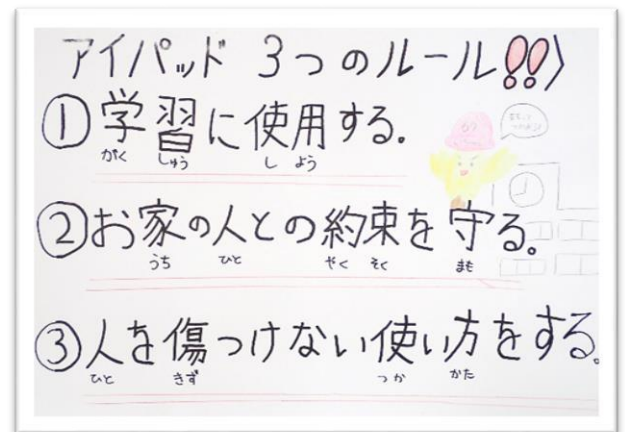 アイパッド 3つのルール!!〉
①学習に使用する.
がくしゅう しよう
②お家の人との約束を守る。
うち ひと やくそく まも
③人を傷つけない使い方をする。
ひと きず つか かた